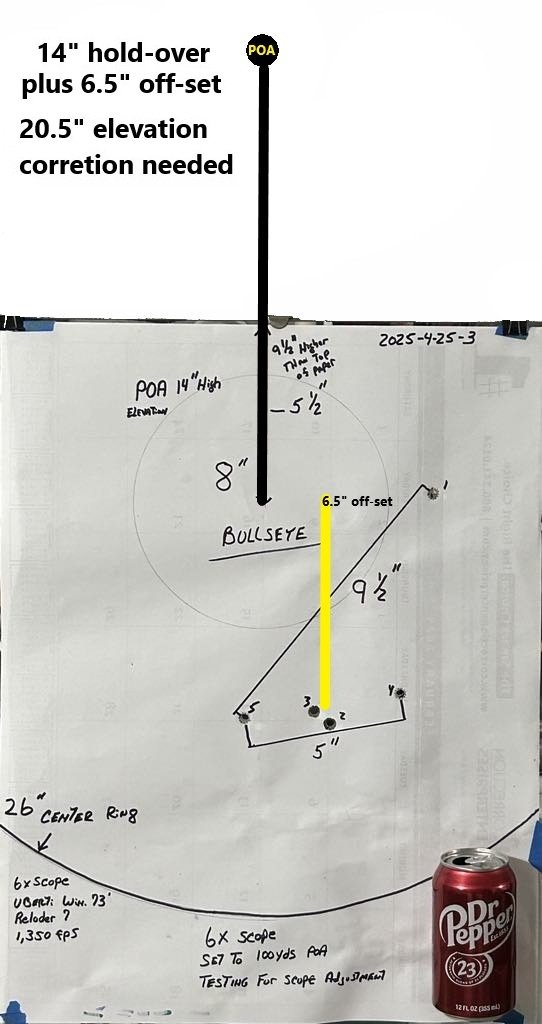 14" hold-over
plus 6.5" off-set
20.5" elevation
corretion needed
POA
2025-4-25-3
9½" Higher
Than Top
of paper
POA 14" High
ELEVATION
5½"
8"
6.5" off-set
1
BULLSEYE
9½"
5
3
2
4
5"
26" CENTER RING
6x Scope
UBERTI WIN. 73'
Reloder 7
1,350 FPS
6X SCOPE
SET TO 100yds POA
TESTING FOR SCOPE ADJUSTMENT
Dr
Pepper
23
12 FL OZ (355 mL)